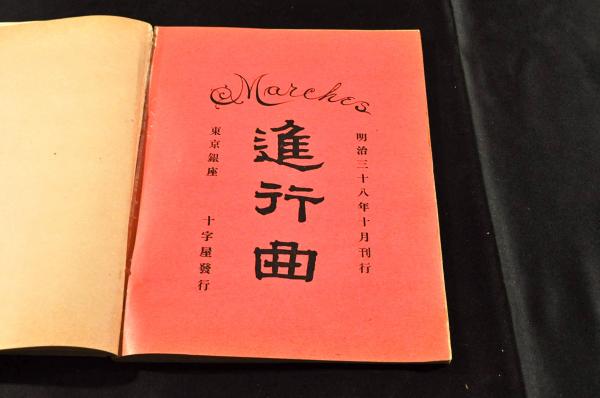 Marches
明治三十八年十月刊行
進行曲
東京銀座
十字屋發行